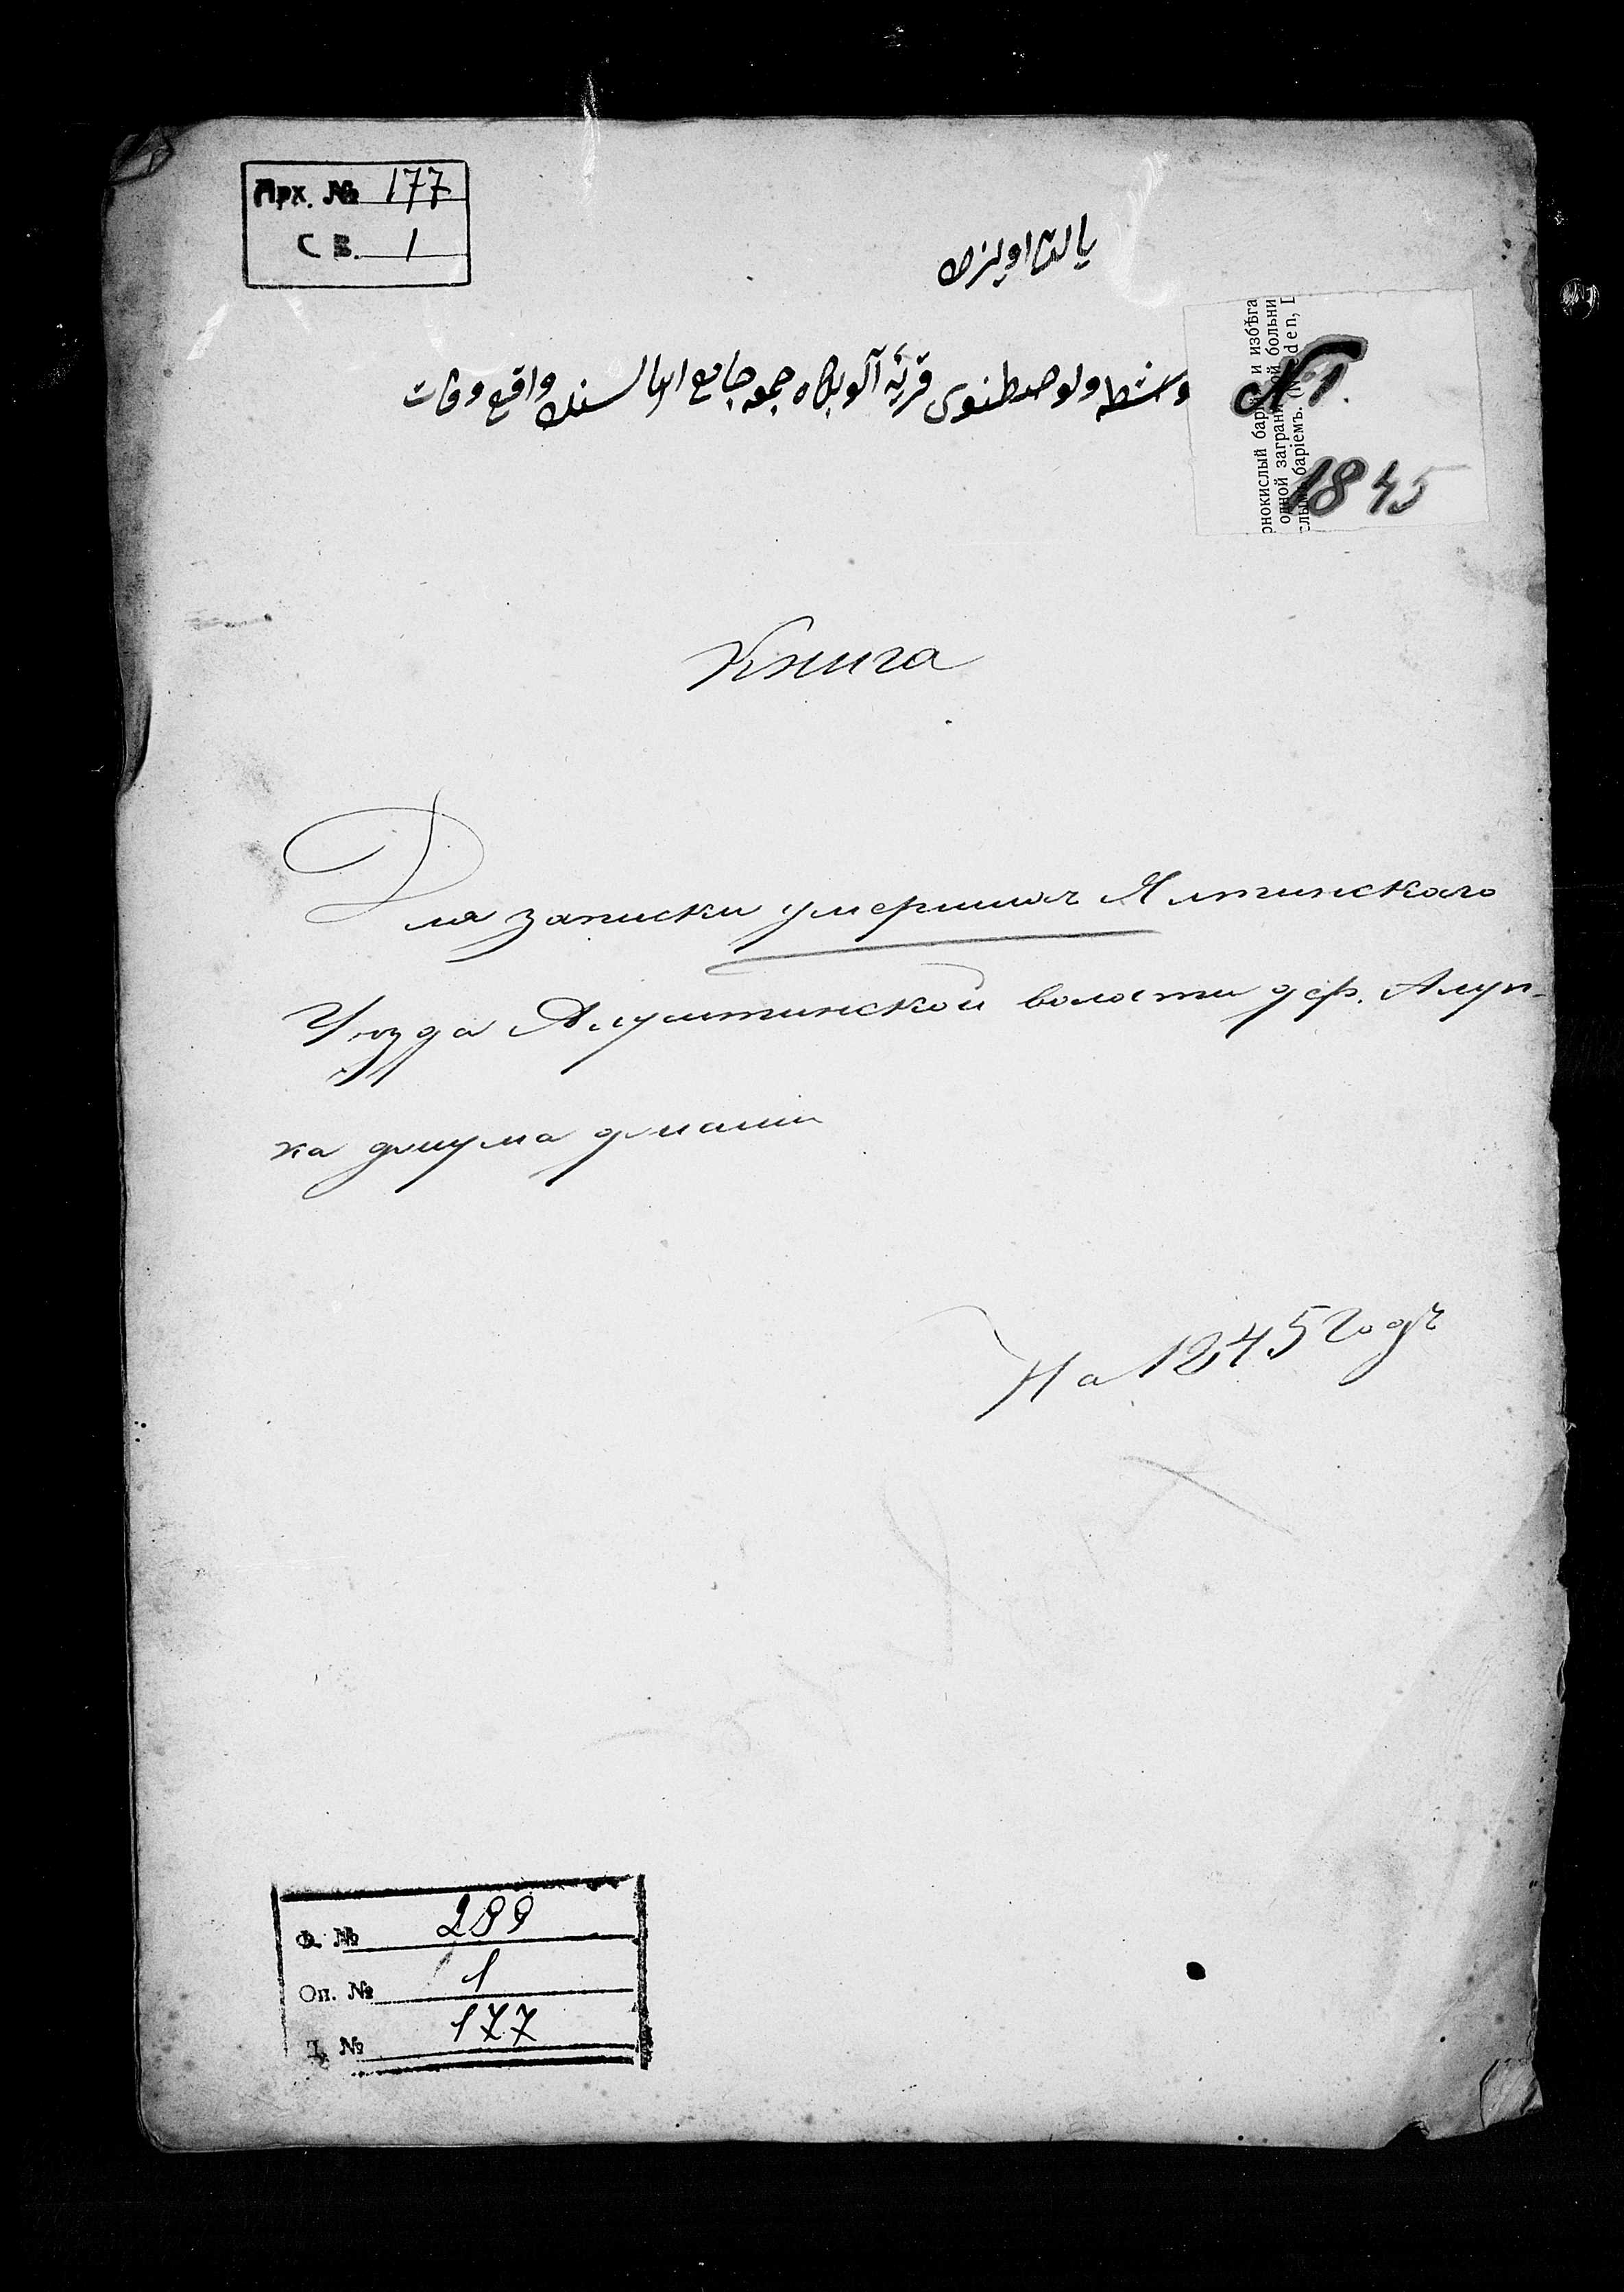 Арх. № 177
Св. 1
يالطا اويزد
قريۀ آلوبكا جمعه جامع اهاليسنك واقع وفات
рнокислый бар и избѣга
одной заграни ой больни
слымъ баріемъ. (N eden, D
№
1845
Книга
Для записки умершихъ Ялтинскаго
Уѣзда Алуштинской волости дер. Алуп-
ка джума джами
На 1845 годъ
Ф. № 289
Оп. № 1
Д. № 177